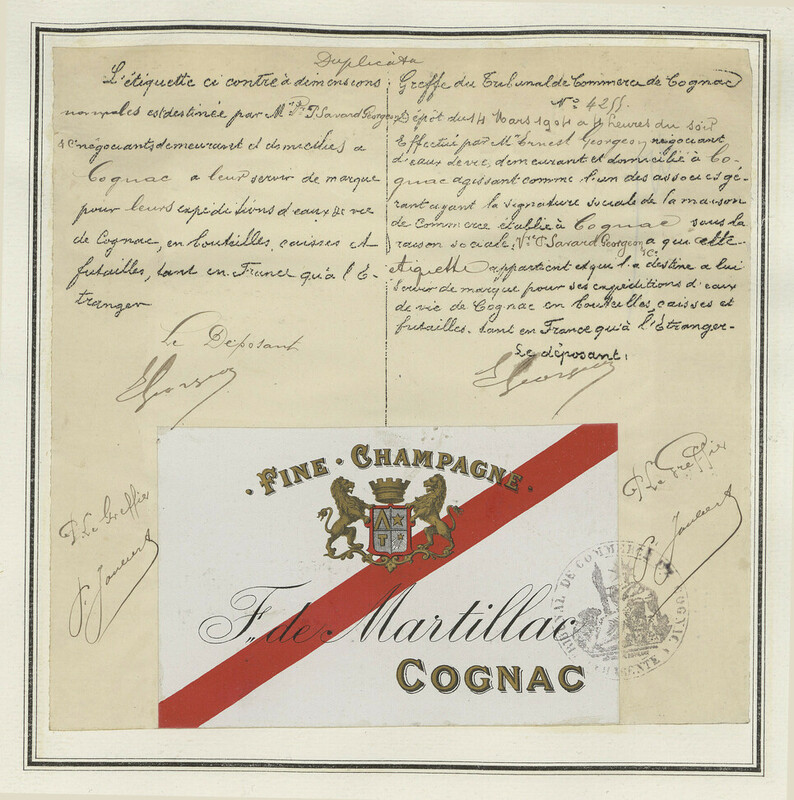 Duplicata
L'étiquette ci contre à dimensions
normales est destinée par Mrs Vve P. Savard Georgeon
& Ce négociants demeurant et domiciliés à
Cognac à leur servir de marque
pour leurs expéditions d'eaux de vie
de Cognac, en bouteilles, caisses et
futailles, tant en France qu'à l'É-
tranger
Le Déposant
EGeorgeon
Greffe du Tribunal de Commerce de Cognac
No 4255.
Dépôt du 14 Mars 1904 à 4 heures du soir
Effectué par Mr Ernest Georgeon négociant
d'eaux de vie, demeurant et domicilié à Co-
gnac agissant comme l'un des associés gé-
rant ayant la signature sociale de la maison
de Commerce établie à Cognac sous la
raison sociale: Vve P. Savard Georgeon & Ce à qui cette
étiquette appartient et qui l'a destine à lui
servir de marque pour ses expéditions d'eaux
de vie de Cognac en bouteilles, caisses et
futailles. tant en France qu'à l'Étranger-
Le déposant,
EGeorgeon
P. Le Greffier
P. Le Greffier
FINE CHAMPAGNE
F. de Martillac
COGNAC
TRIBUNAL DE COMMERCE COGNAC CHARENTE